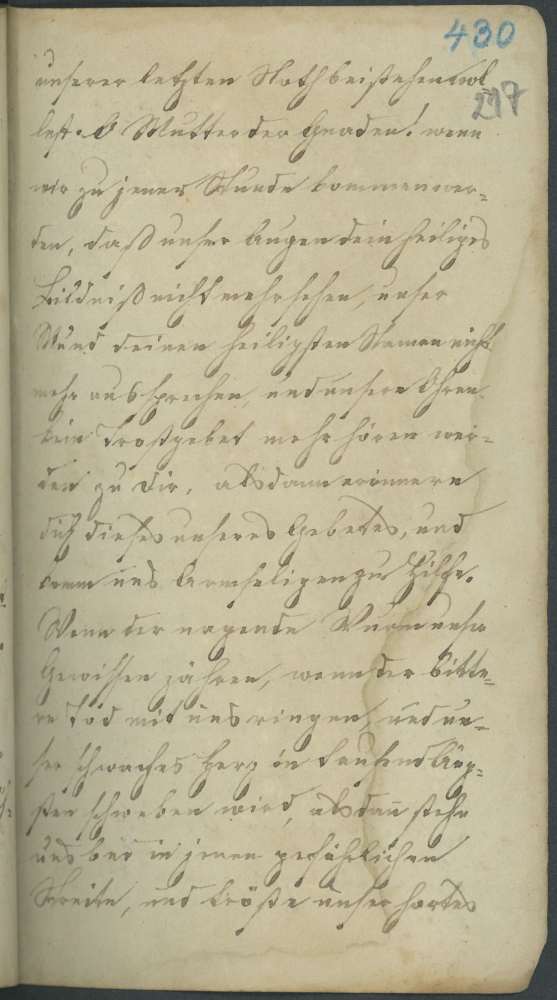 430
unserer letzten Noth beistehen wol
217
lest. O Mutter der Gnaden! wenn
wir zu jener Stunde kommen wer=
den, daß unser Augen dein heiliges
Bildniß nicht mehr sehen, unser
Mund deinen heiligsten Namen nicht
mehr aussprechen, und unsere Ohren
kein Trostgebet mehr hören wer=
den zu dir, alsdann erinnere
dich dieses unseres Gebetes, und
komm uns Armseligen zu Hilfe.
Wenn der nagende Wurm unser
Gewissen, wenn der bitte=
re Tod mit uns ringen, und un=
ser schwaches Herz in tausend Äng=
sten schweben wird, alsdan stehe
uns bei in jenen gefährlichen
Streite, und unser hartes